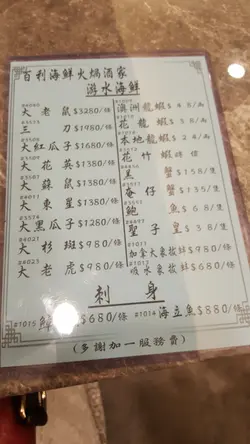 百利海鮮火煱酒家
游水海鮮
#4060
大老鼠$3280/條
#3525
三刀$1980/條
大紅瓜子$1680/條
大花英$1380/條
#3501
大蘇鼠$1380/條
#4011
大東星$1380/條
#3514
大黑瓜子$1280/條
#4021
大杉斑$980/條
#4023
大老虎$980/條
澳洲龍蝦$48/両
花龍蝦$
本地龍蝦$24/両
花竹蝦時價
黑蟹$158/隻
奄仔蟹$135/隻
鮑魚$68/隻
聖子皇$38/隻
#1011
加拿大象拔蚌$980/條
#1017
吸水象拔蚌$680/條
刺身
#1015
$680/條
#1014 海立魚$880/條
(多謝加一服務費)